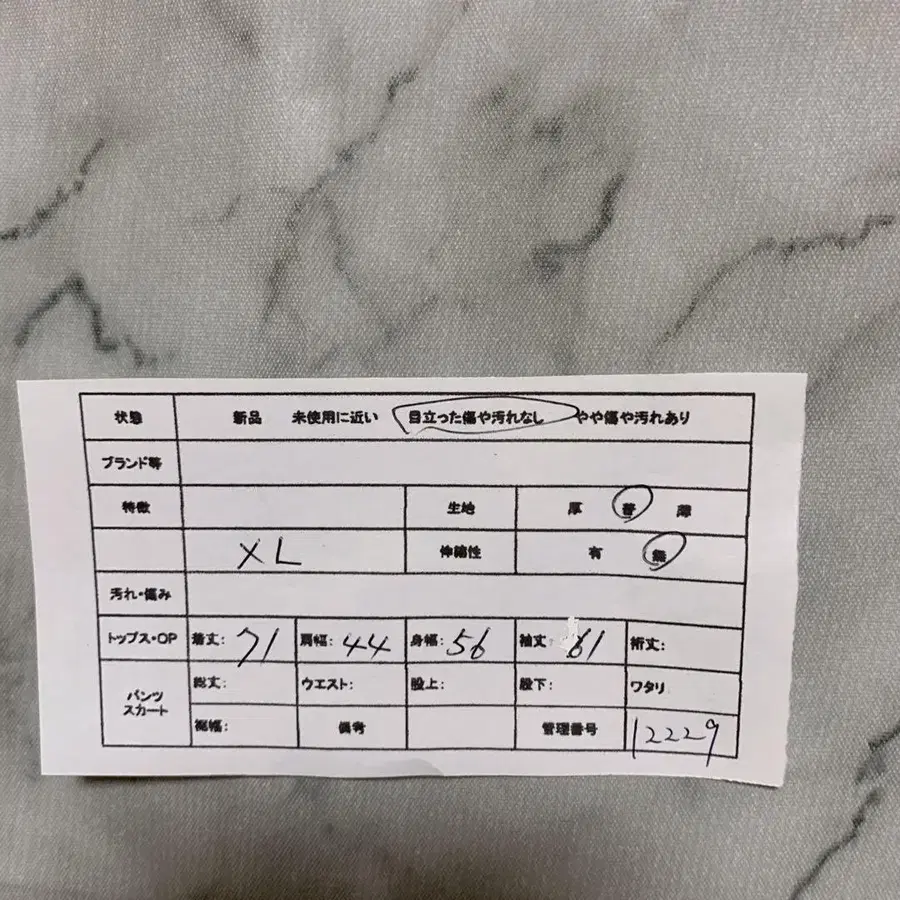 状態 新品 未使用に近い 目立った傷や汚れなし やや傷や汚れあり
ブランド等
特徴 生地 厚 普 薄
XL 伸縮性 有 無
汚れ・傷み
トップス・OP 着丈: 71 肩幅: 44 身幅: 56 袖丈: 61 裄丈:
パンツ スカート 総丈: ウエスト: 股上: 股下: ワタリ
裾幅: 備考 管理番号 12229